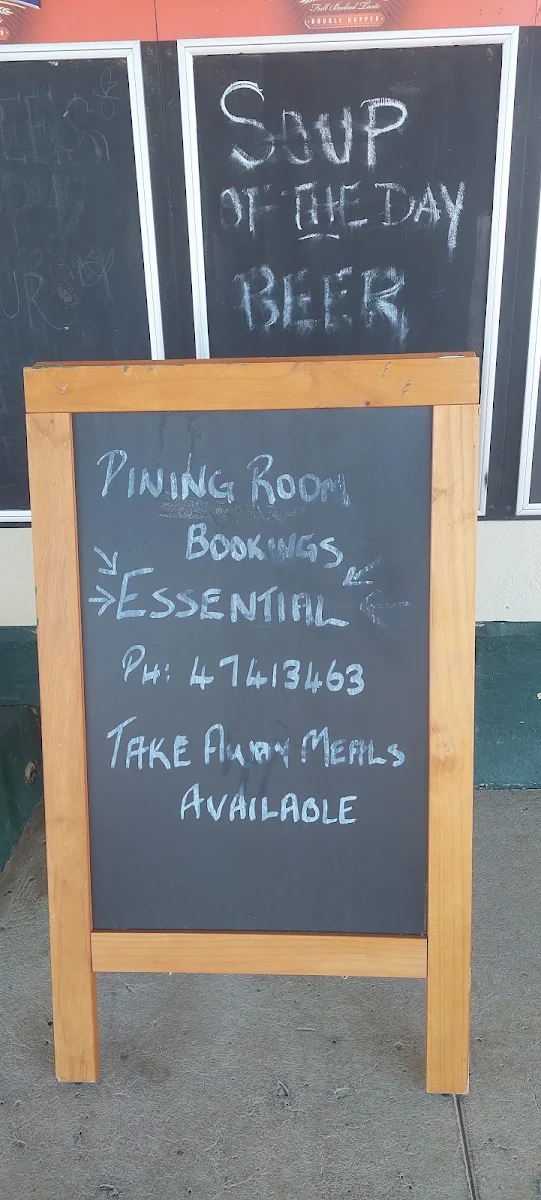 Full Bodied Taste
DOUBLE HEPPER
SOUP
OF THE DAY
BEER
DINING ROOM
BOOKINGS
ESSENTIAL
PH: 47413463
TAKE AWAY MEALS
AVAILABLE